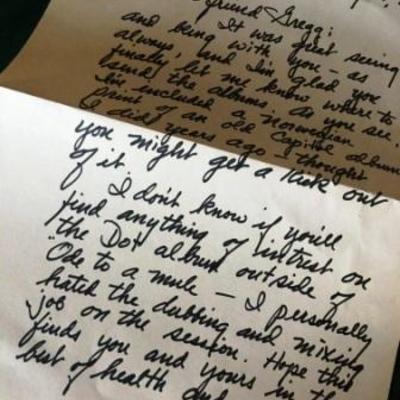 friend Gregg:
It was great seeing
and being with you — as
always, and I'm glad you
finally let me know where to
send the albums. As you see,
I've included a Norwegian
print of an old Capitol album
I did years ago — thought
you might get a kick out
of it.
I don't know if you'll
find anything of intrest on
the Dot album outside of
"Ode to a mule — I personally
hated the dubbing and mixing
job on the session. Hope this
finds you and yours in the
best of health and